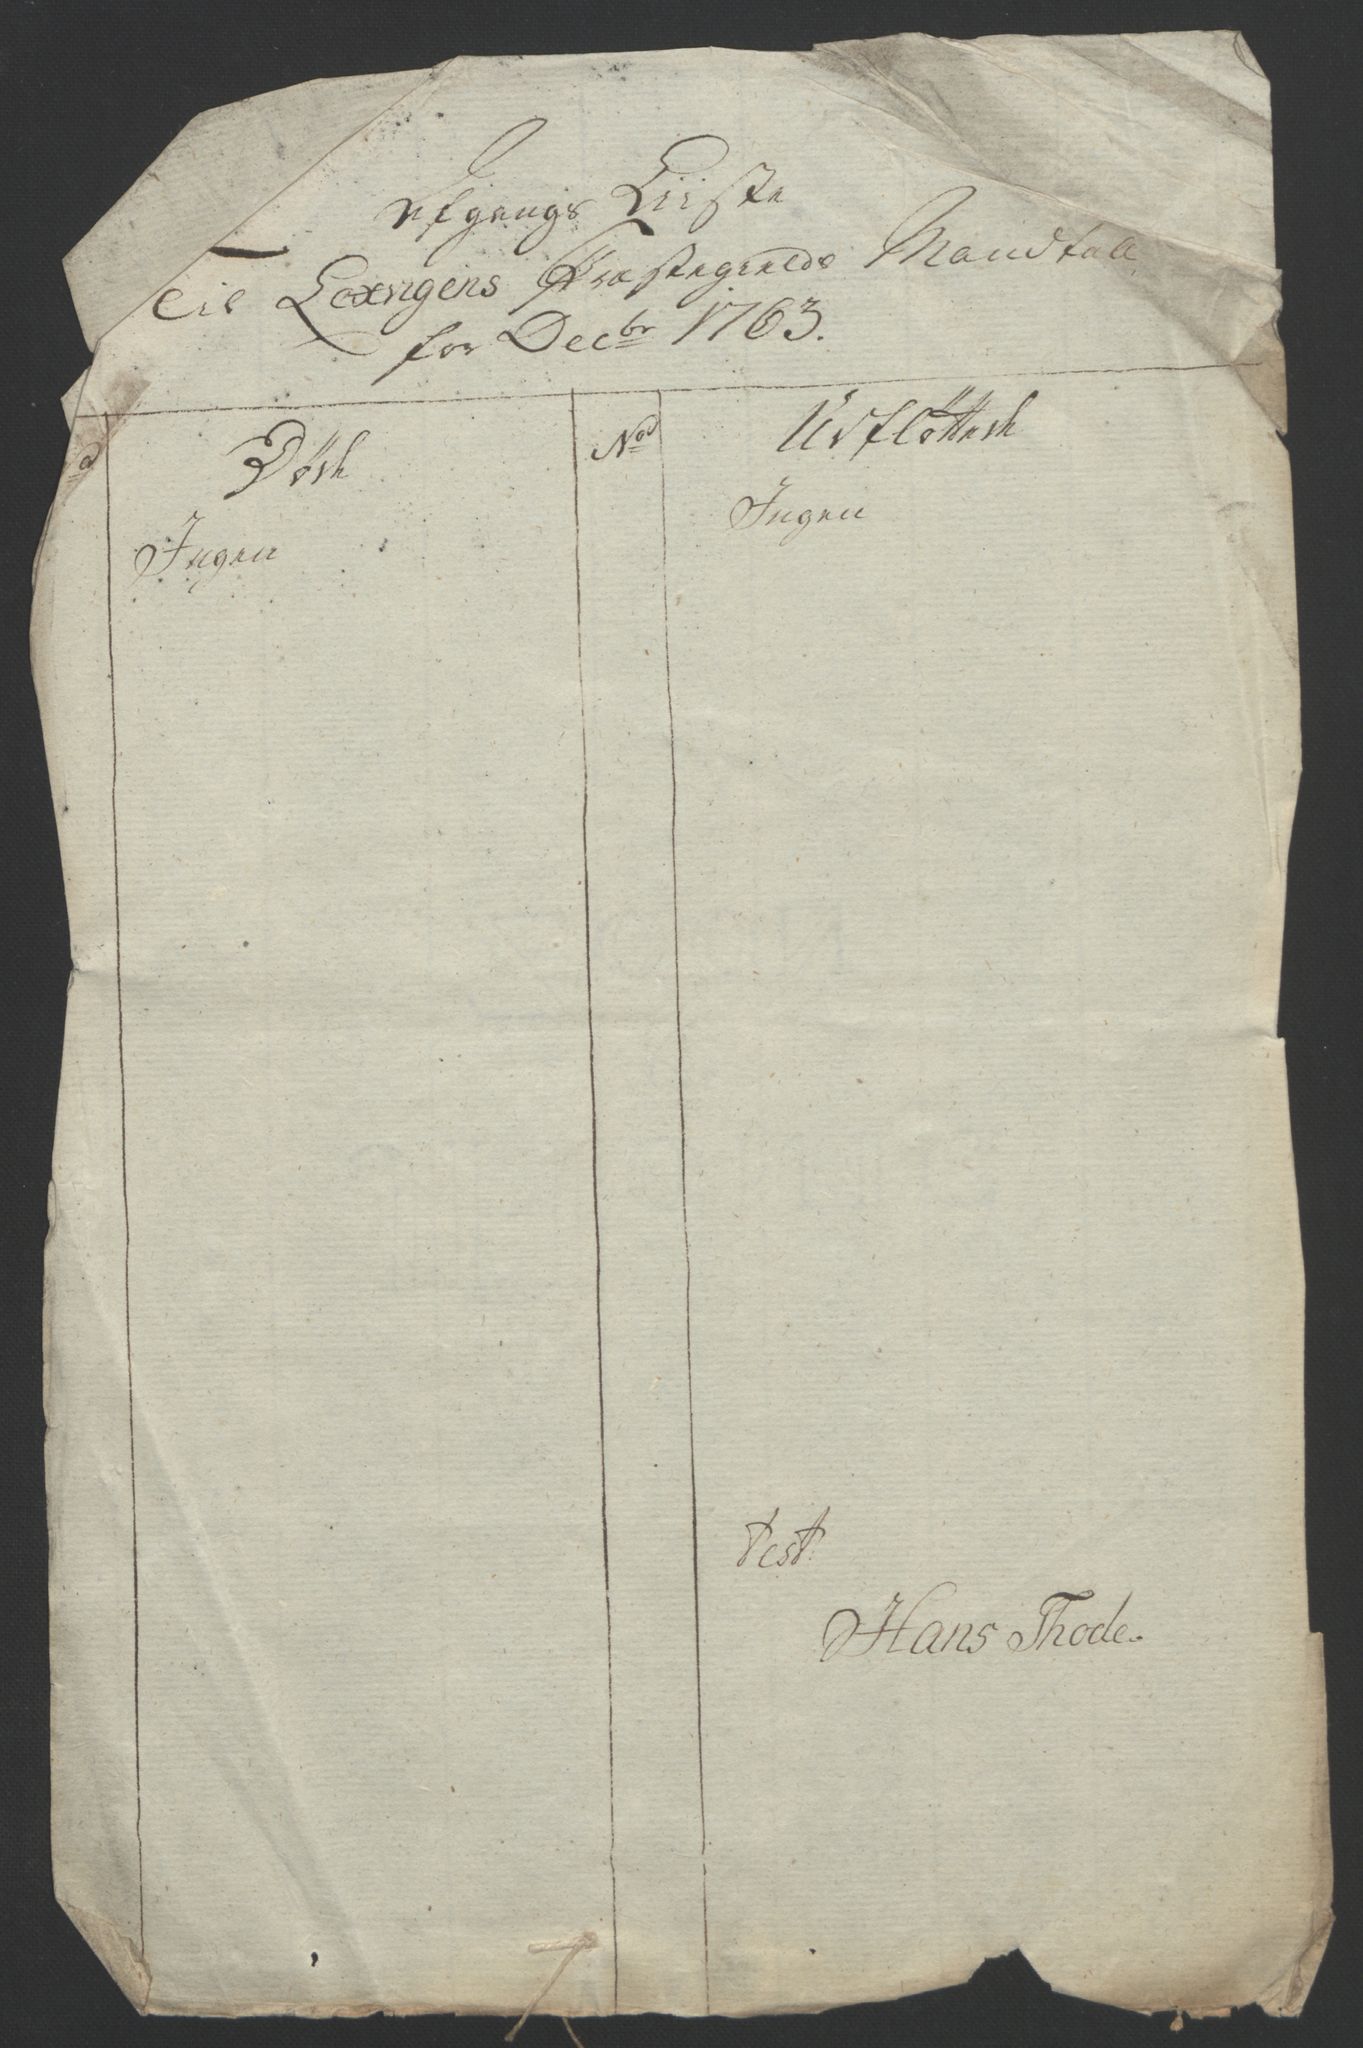 Afgangs Liste
til Loxngens Præstegields Mandtall
for Decbr 1763.
Døde
No
Udfløttede
Ingen
Ingen
Test
Hans Thode.